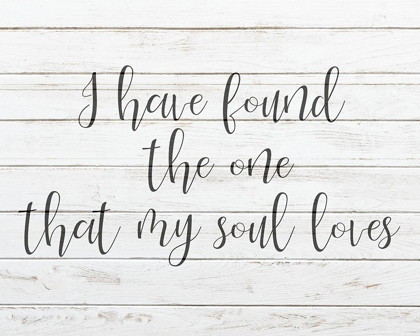 I have found
the one
that my soul loves